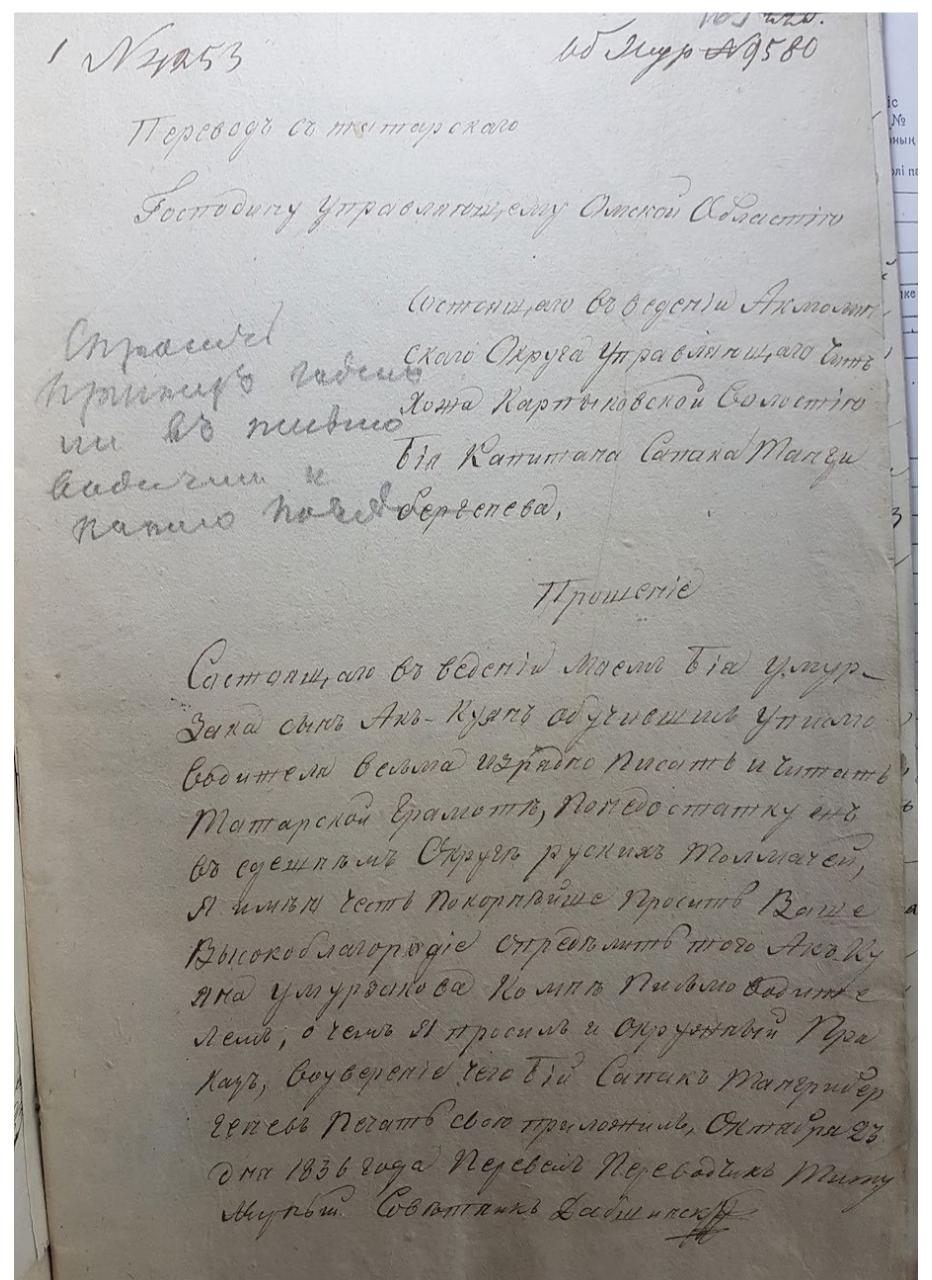 № 4253
об Жур №9580
Переводъ съ татарскаго
Господину Управляющему Омской Областію
Состоящаго въ ведении Акмолин-
скаго Округа Управляющаго Чить
Хожа Карпыковской Волостію
Бія Капитана Сапака Танги
бергенева,
Спросить
годень
ли въ письмо
водители к
Прошеніе
Состоящаго въ ведении моемъ Бія Умур-
Зака сынъ Акъ-Куянъ обучившись у письмо
водителя весьма изрядно писать и читать
Татарской Грамотѣ, По недостатку
въ сдешнемъ Округѣ руских Толмачей,
Я имѣю честь покорнѣйше просить Ваше
Высокоблагородіе определить того Акъ-Ку
яна Умурзакова Ко мнѣ Письмоводите
лемъ, о чемъ Я просилъ и окружный При
казъ, Воуверение чего Бій Сапакъ Тангрибер
геневъ печать свою приложилъ, Октября 23
дня 1836 года Перевелъ Переводчикъ
Советникъ